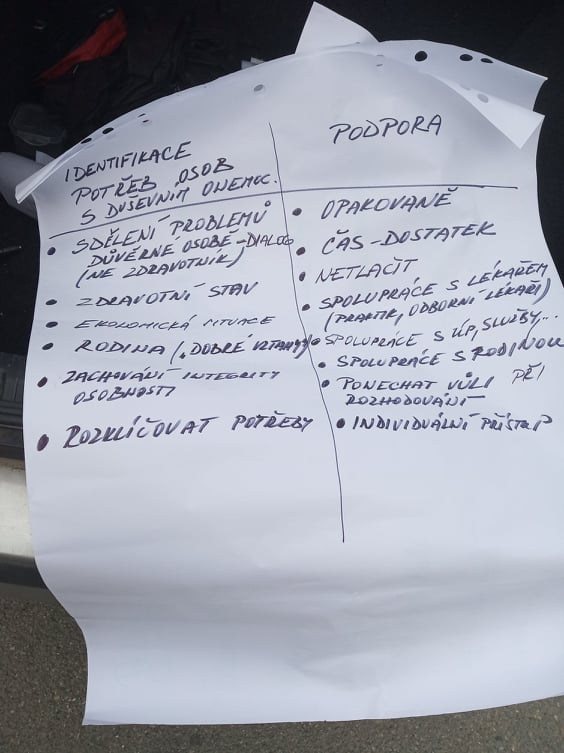 IDENTIFIKACE
POTŘEB OSOB
S DUŠEVNÍM ONEMOC.
• SDĚLENÍ PROBLEMŮ
DŮVĚRNÉ OSOBĚ - DIALOG
(NE ZDRAVOTNÍK)
• ZDRAVOTNÍ STAV
• EKONOMICKÁ SITUACE
• RODINA (, DOBRÉ VZTAHY)
• ZACHOVÁNÍ INTEGRITY
OSOBNOSTI
• ROZKLÍČOVAT POTŘEBY
PODPORA
• OPAKOVANĚ
• ČAS - DOSTATEK
• NETLAČIT
• SPOLUPRÁCE S LÉKAŘEM
(PRAKTIK, ODBORNÍ LÉKAŘI)
• SPOLUPRÁCE S ÚP, SLUŽBY...
• SPOLUPRÁCE S RODINOU
• PONECHAT VŮLI PŘI
ROZHODOVÁNÍ
• INDIVIDUÁLNÍ PŘÍSTUP